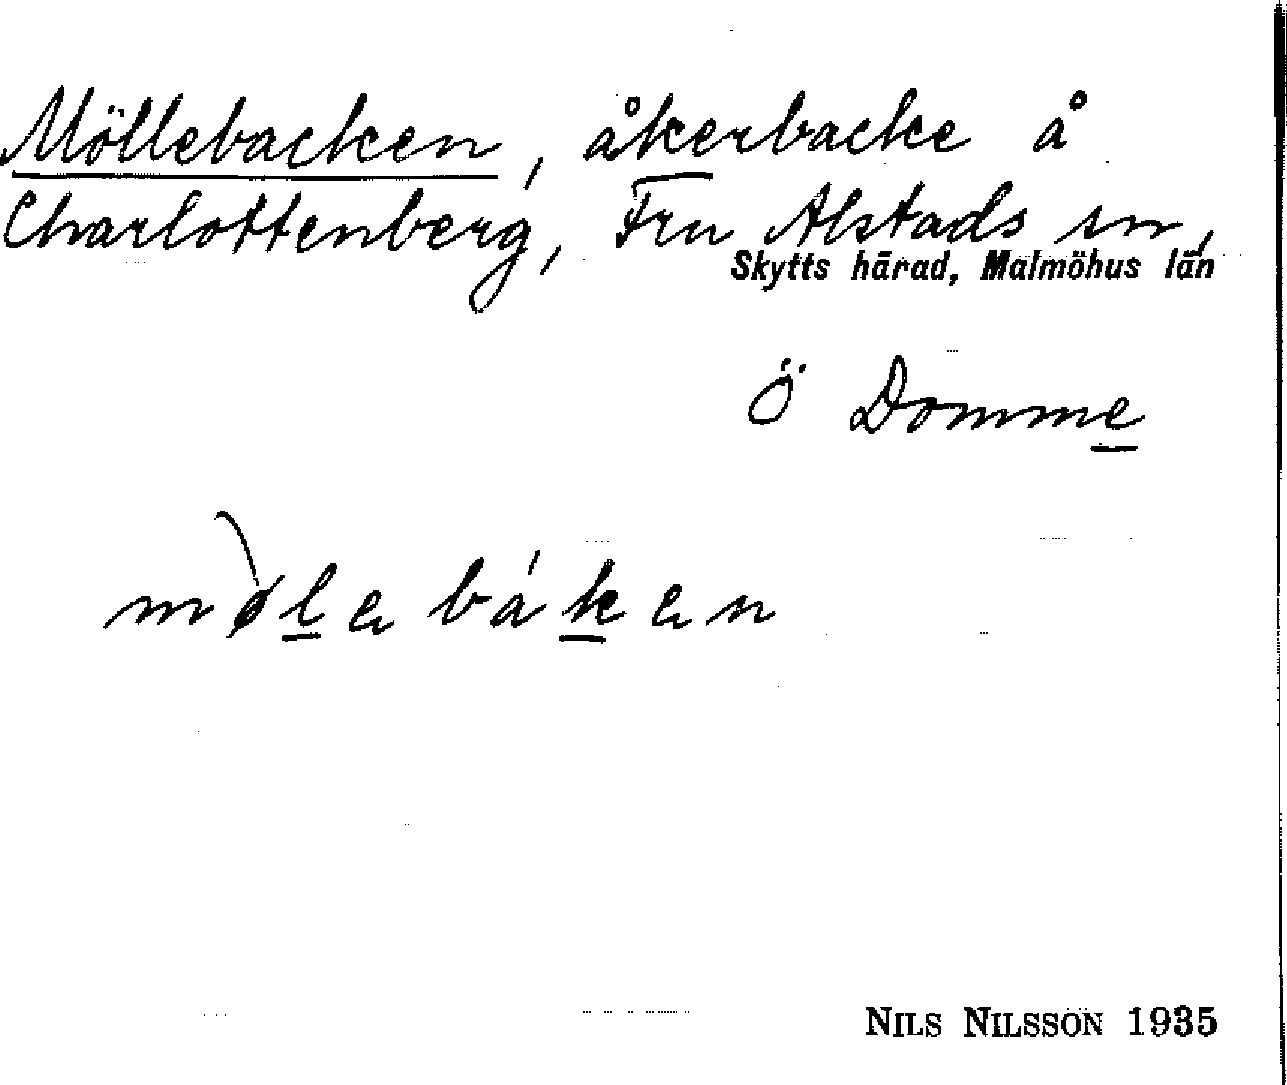 Möllebacken, åkerbacke å
Charlottenberg, Fru Alstads sn,
Skytts härad, Malmöhus län
Ö Domme
mø̀labákan
NILS NILSSON 1935